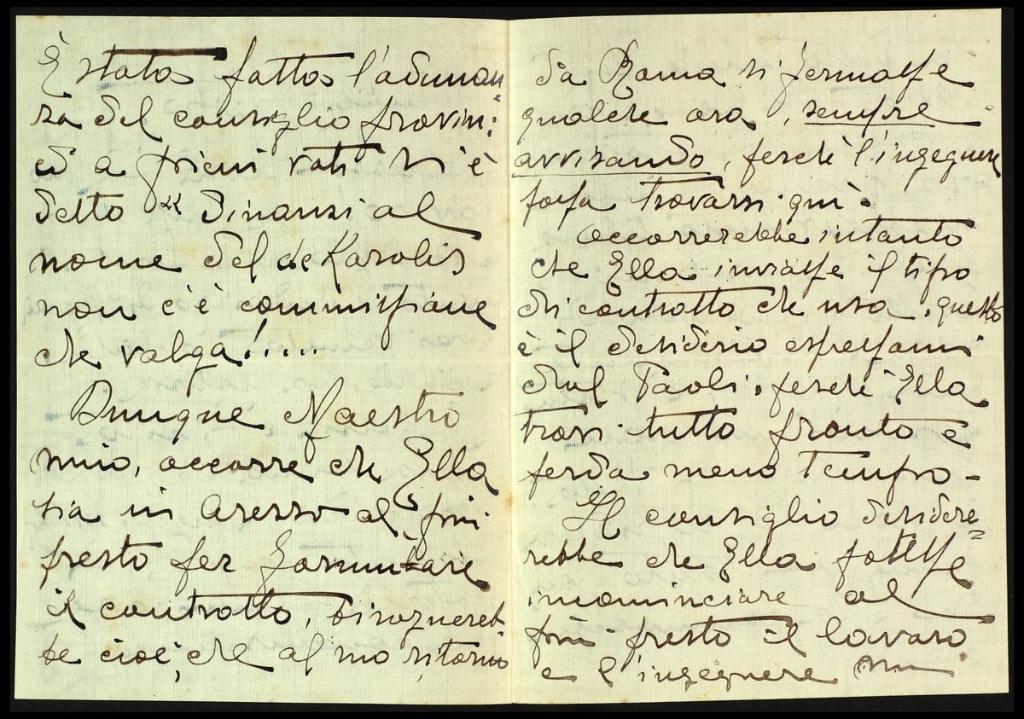 È stata fatta l'adunan=
za del consiglio provin:
ed a pieni voti si è
detto « Dinanzi al
nome del de Karolis
non c'è commissione
che valga!....
Dunque Maestro
mio, occorre che Ella
sia in Arezzo al più
presto per formulare
il contratto, bisognereb
be cioè, che al suo ritorno
da Roma si fermasse
qualche ora, sempre
avvisando, perchè l'ingegnere
possa trovarsi quì.
Occorrerebbe intanto
che Ella inviasse il tipo
di contratto che usa, questo
è il desiderio espressomi
dal Paoli, perchè Ella
trovi tutto pronto e
perda meno tempo -
Il consiglio desidere=
rebbe che Ella potesse
incominciare al
più presto il lavoro
e l'ingegnere mi